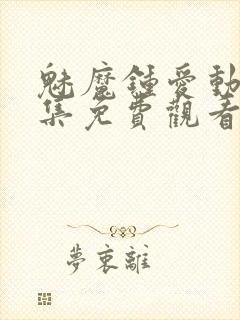 魅魔鍾愛動
集免費觀看
夢裏離